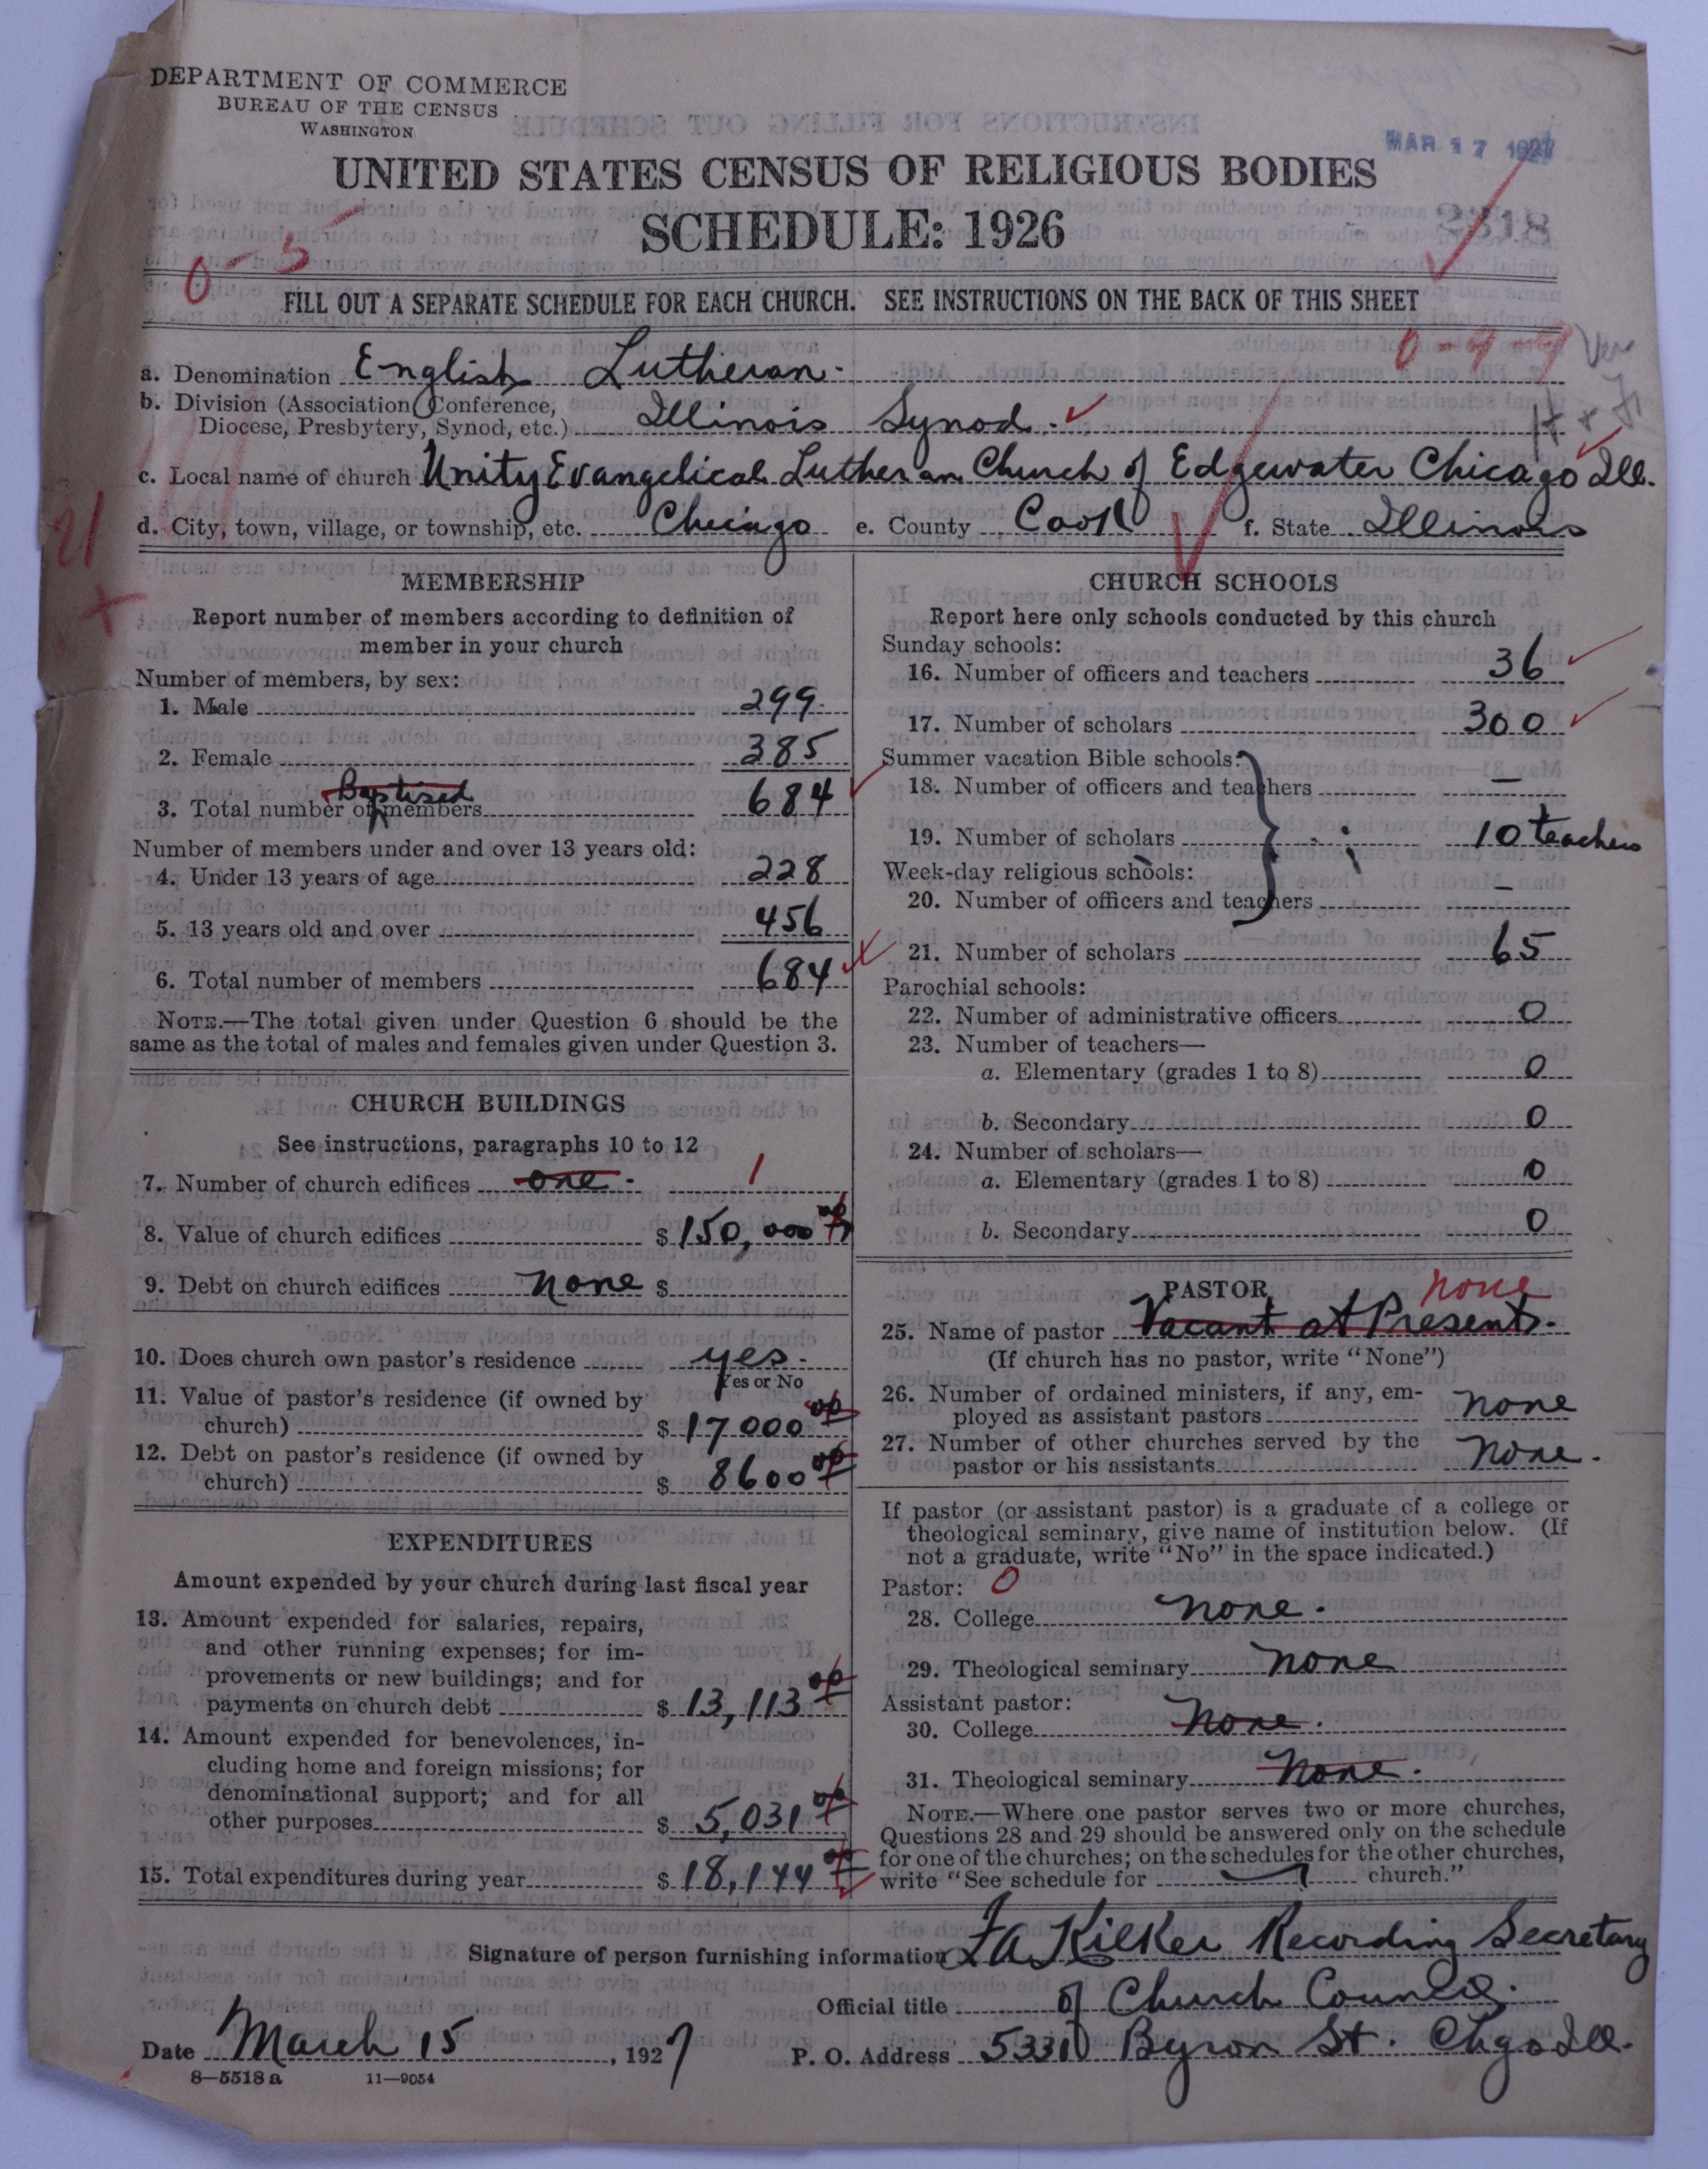 DEPARTMENT OF COMMERCE
BUREAU OF THE CENSUS
WASHINGTON
MAR 17 1927
UNITED STATES CENSUS OF RELIGIOUS BODIES
2318
SCHEDULE: 1926
0-5
FILL OUT A SEPARATE SCHEDULE FOR EACH CHURCH. SEE INSTRUCTIONS ON THE BACK OF THIS SHEET
0-9-9 Ver
a. Denomination English Lutheran.
b. Division (Association, Conference,
Diocese, Presbytery, Synod, etc.) Illinois Synod.
c. Local name of church Unity Evangelical Lutheran Church of Edgewater Chicago Ill.
d. City, town, village, or township, etc. Chicago e. County Cook f. State Illinois
21
+
MEMBERSHIP
Report number of members according to definition of
member in your church
Number of members, by sex:
1. Male 299.
2. Female 385
Baptised
3. Total number of members 684
Number of members under and over 13 years old:
4. Under 13 years of age 228
5. 13 years old and over 456
6. Total number of members 684
NOTE.—The total given under Question 6 should be the
same as the total of males and females given under Question 3.
CHURCH BUILDINGS
See instructions, paragraphs 10 to 12
7. Number of church edifices one. 1
8. Value of church edifices $ 150,000 00
9. Debt on church edifices none $
10. Does church own pastor's residence yes.
Yes or No
11. Value of pastor's residence (if owned by
church) $ 17000 00
12. Debt on pastor's residence (if owned by
church) $ 8600 00
EXPENDITURES
Amount expended by your church during last fiscal year
13. Amount expended for salaries, repairs,
and other running expenses; for im-
provements or new buildings; and for
payments on church debt $ 13,113 00
14. Amount expended for benevolences, in-
cluding home and foreign missions; for
denominational support; and for all
other purposes $ 5,031 00
15. Total expenditures during year $ 18,144 00
CHURCH SCHOOLS
Report here only schools conducted by this church
Sunday schools:
16. Number of officers and teachers 36
17. Number of scholars 300
Summer vacation Bible schools:
18. Number of officers and teachers —
19. Number of scholars 10 teachers
Week-day religious schools:
20. Number of officers and teachers —
21. Number of scholars 65
Parochial schools:
22. Number of administrative officers 0
23. Number of teachers—
a. Elementary (grades 1 to 8) 0
b. Secondary 0
24. Number of scholars—
a. Elementary (grades 1 to 8) 0
b. Secondary 0
PASTOR none
25. Name of pastor Vacant at Present.
(If church has no pastor, write "None")
26. Number of ordained ministers, if any, em-
ployed as assistant pastors none
27. Number of other churches served by the
pastor or his assistants none.
If pastor (or assistant pastor) is a graduate of a college or
theological seminary, give name of institution below. (If
not a graduate, write "No" in the space indicated.)
Pastor: 0
28. College none.
29. Theological seminary none
Assistant pastor:
30. College None.
31. Theological seminary None.
NOTE.—Where one pastor serves two or more churches,
Questions 28 and 29 should be answered only on the schedule
for one of the churches; on the schedules for the other churches,
write "See schedule for church."
Signature of person furnishing information F A Kilker Recording Secretary
Official title of Church Council.
Date March 15, 1927 P. O. Address 5331 Byron St. Chgo Ill.
8—5518 a 11—9054